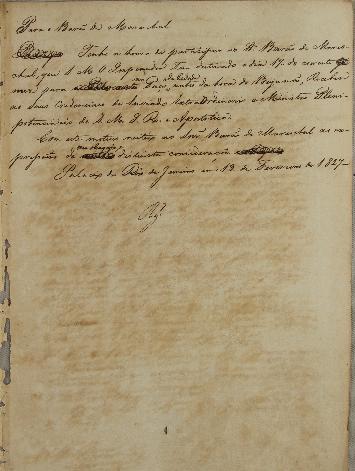 Para o Barão de Mareschal
Tenho a honra de participar ao Sr. Barão de Mares-
chal, que S. M. O Imperador Tem destinado o dia 17 do corrente
mez para no Paço da Cidade, antes da hora do Beijamão, Receber
as Suas Credenciaes de Enviado Extraordinario e Ministro Pleni-
potenciario de S. M. I. R. e Apostolica.
Com este motivo reitero ao Snr. Barão de Mareschal as ex-
pressões da distincta consideração
Palacio do Rio de Janeiro em 13 de Fevereiro de 1827